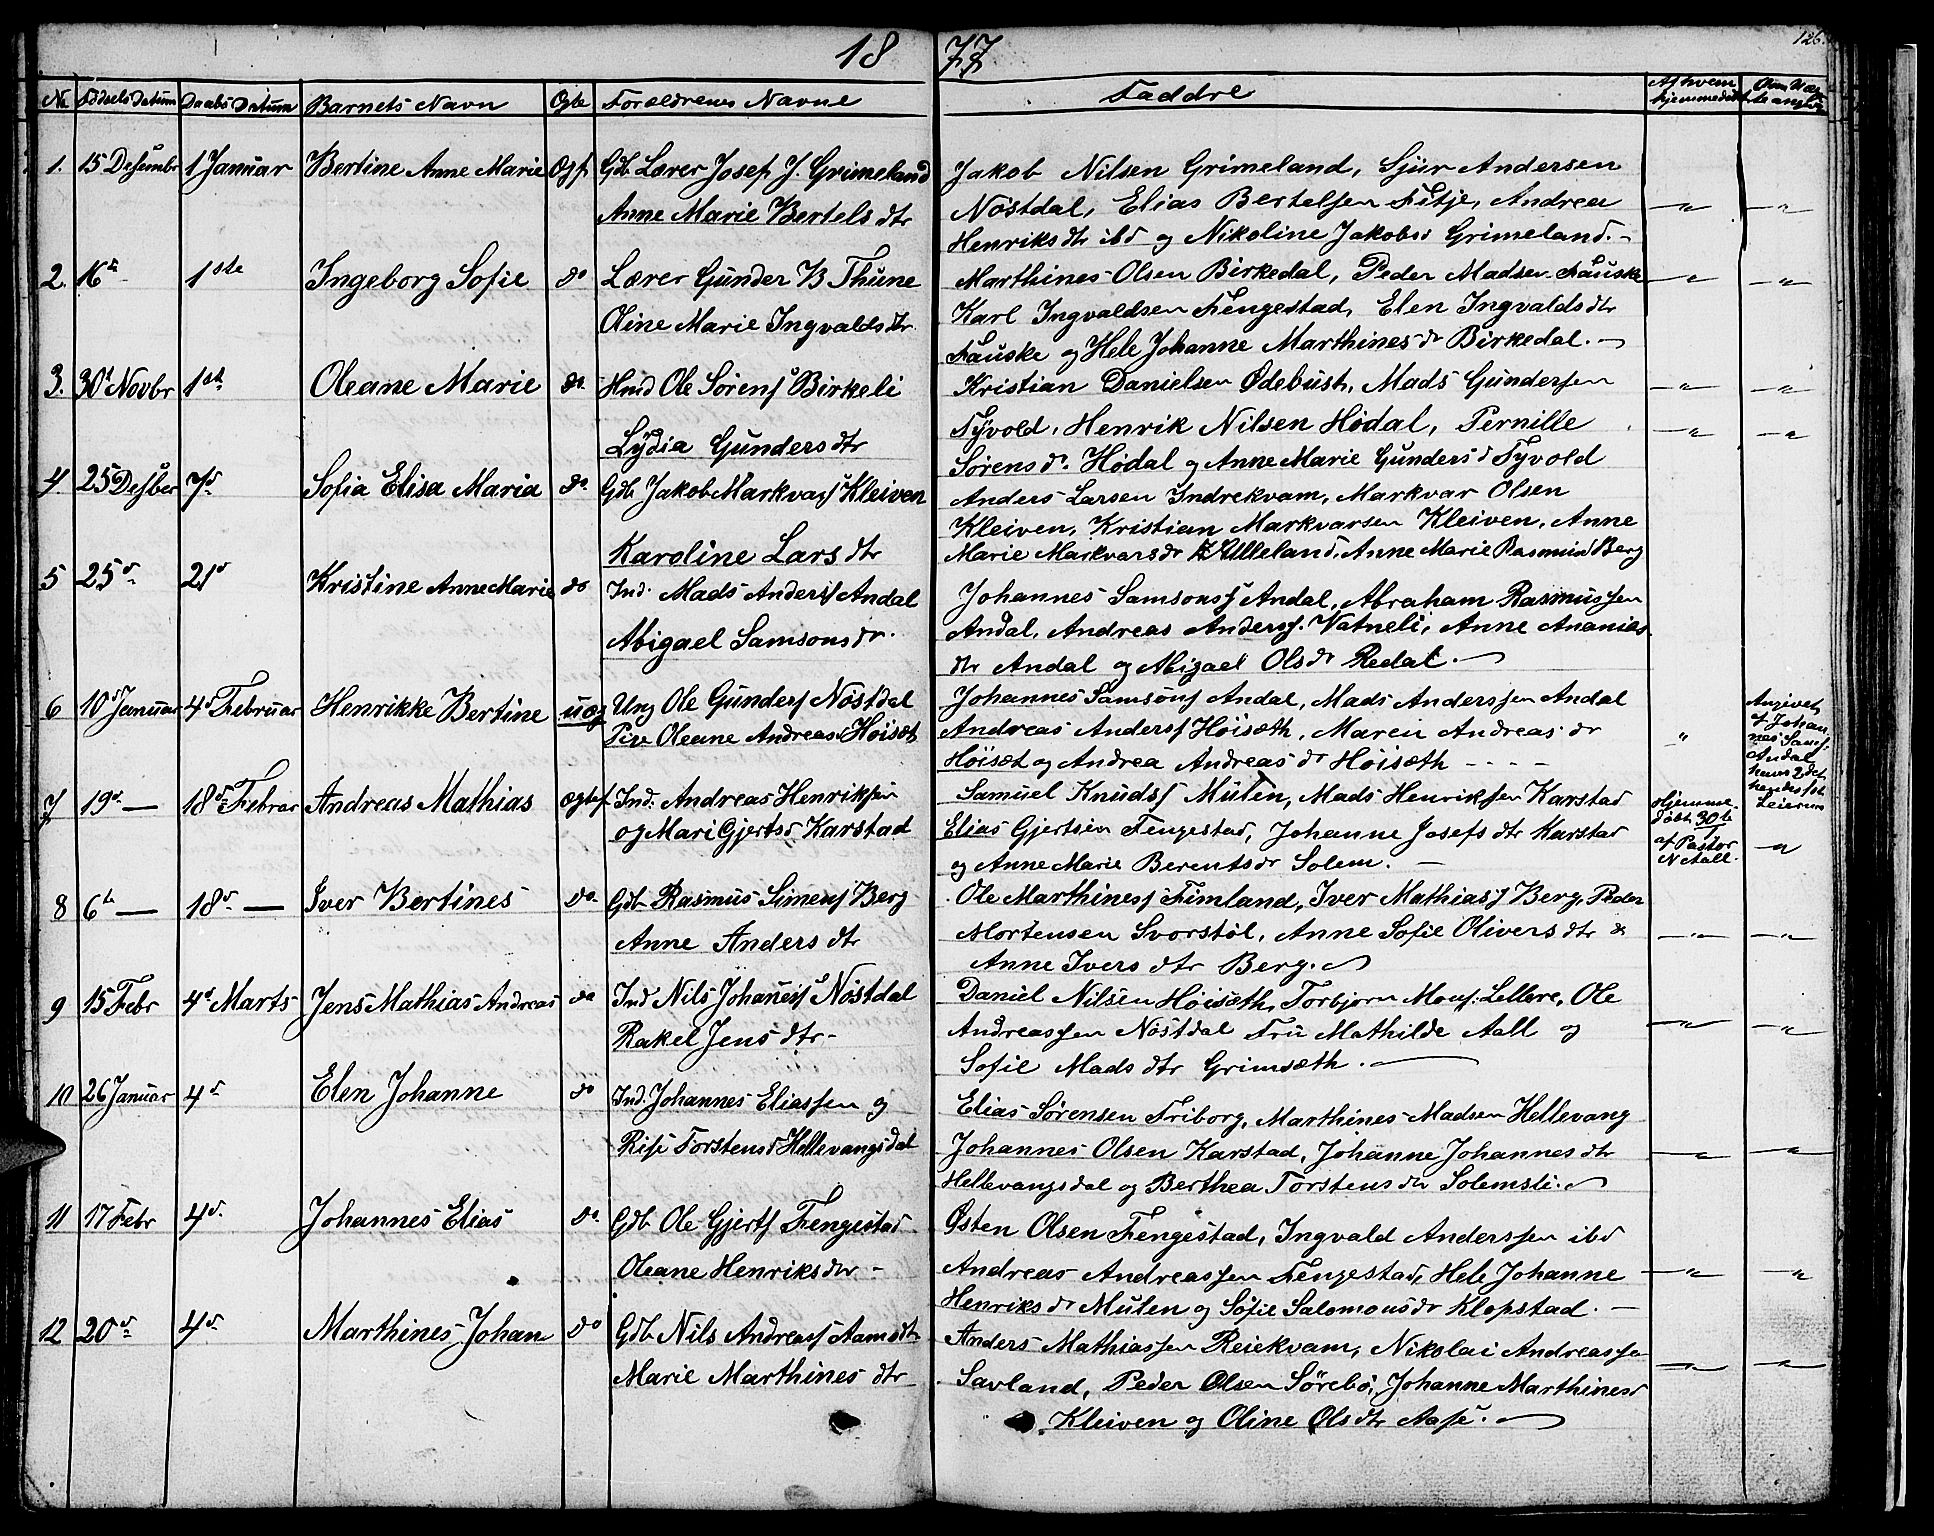 18 77
126.
No Fødsels Datum Daabs Datum Barnets Navn Ægte Forældrenes Navne Faddre Af hvem hjemmedøbt
1. 15 Desembr 1 Januar Bertine Anne Marie Ægt Gdb Lærer Josef J. Grimeland
Anne Marie Bertels dtr
Jakob Nilsen Grimeland, Sjur Andersen
Nøstdal, Elias Bertelsen Fitje, Andrea
Henriks dtr ibd og Nikoline Jakobsd Grimeland.
2. 16d 1ste Ingeborg Sofie do Lærer Gunder B Thune
Oline Marie Ingvalds dtr
Marthines Olsen Birkedal, Peder Madsen Fauske
Karl Ingvaldsen Fengestad, Elen Ingvalds dtr
Fauske og Hele Johanne Marthines dr Birkedal.
3. 30t Novbr 1ste Oleane Marie do. Hmd Ole Sørens Birkeli
Lydia Gunders dtr
Kristian Danielsen Ødebust, Mads Gundersen
Tyvold, Henrik Nilsen Hødal, Pernille
Sørens dr. Hødal og Anne Marie Gunders d Tyvold
4. 25 Desber 7d Sofia Elisa Maria do Gdb Jakob Markvars Kleiven
Karoline Lars dtr
Anders Larsen Indrekvam, Markvar Olsen
Kleiven, Kristian Markvarsen Kleiven, Anne
Marie Markvars dr Ulleland, Anne Marie Rasmusd Berg
5 25d 21d Kristine Anne Marie do Ind. Mads Anders Andal
Abigael Samsons dr.
Johannes Samsons Andal, Abraham Rasmussen
Andal, Andreas Anders. Vatneli, Anne Ananias
dtr Andal og Abigael Ols dr Redal.
6 10d Januar 4d Februar Henrikke Bertine uæg Ung Ole Gunders Nøstdal
Pige Oleane Andreasd Høisæt
Johannes Samsons Andal, Mads Anderssen Andal
Andreas Anders Høisæth, Maren Andreas dr
Høisæt og Andrea Andreas dr Høisæth
Angivet
af Johan-
nes Sams.
Andal
hans 2det
hendes 1st
Leierm
7 19d 18d Februar Andreas Mathias Ægtef. Ind. Andreas Henriksen
og Mari Gjertsd Karstad
Samuel Knuds Mulen, Mads Henriksen Karstad
Elias Gjertsen Fengestad, Johanne Josefs dtr Karstad
og Anne Marie Berents dr Solem.
Hjemme-
døbt 30te
af Pastor
N Aall.
8 6te 18d. Iver Bertines do. Gdb Rasmus Simens Berg
Anne Anders dtr
Ole Marthines Fimland, Iver Mathias Berg, Peder
Mortensen Svorstøl, Anne Sofie Olivers dtr &
Anne Ivers dtr Berg.
9 15 Febr 4d Marts Jens Mathias Andreas do Ind Nils Johanes Nøstdal
Rakel Jens dtr
Daniel Nilsen Høisæth, Torbjørn Mons. Lellere, Ole
Andreassen Nøstdal Fru Mathilde Aall og
Sofie Mads dtr Grimsæth.
10 26 Januar 4d Elen Johanne do Ind. Johannes Eliassen og
Rise Torstensd Hellevangsdal
Elias Sørensen Friborg, Marthines Madsen Hellevang
Johannes Olsen Karstad, Johanne Johannes dtr
Hellevangsdal og Berthea Torstens dtr Solemsli.
11 17 Febr 4d. Johannes Elias do. Gdb Ole Gjerts Fengestad
Oleane Henriks dtr
Østen Olsen Fengestad, Ingvald Anderssen ibd
Andreas Andreassen Fengestad, Hele Johanne
Henriks dr Mulen og Sofie Salomons dr Klopstad.
12 20d 4d. Marthines Johan do Gdb Nils Andreas Aamodt
Marie Marthines dtr
Anders Mathiassen Reiekvam, Nikolai Andreassen
Savland, Peder Olsen Sørebø, Johanne Marthinesd
Kleiven og Oline Ols dtr Aase.